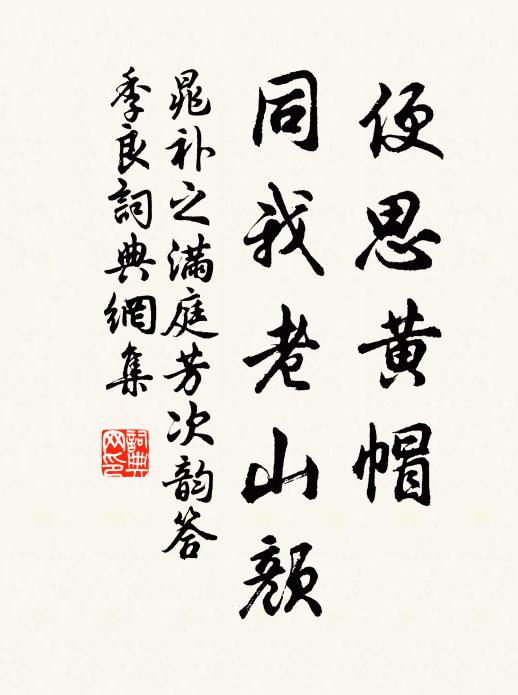 便思黄帽
同我老山颜
晁补之满庭芳次韵答
季良詞典網集
詞典
网印